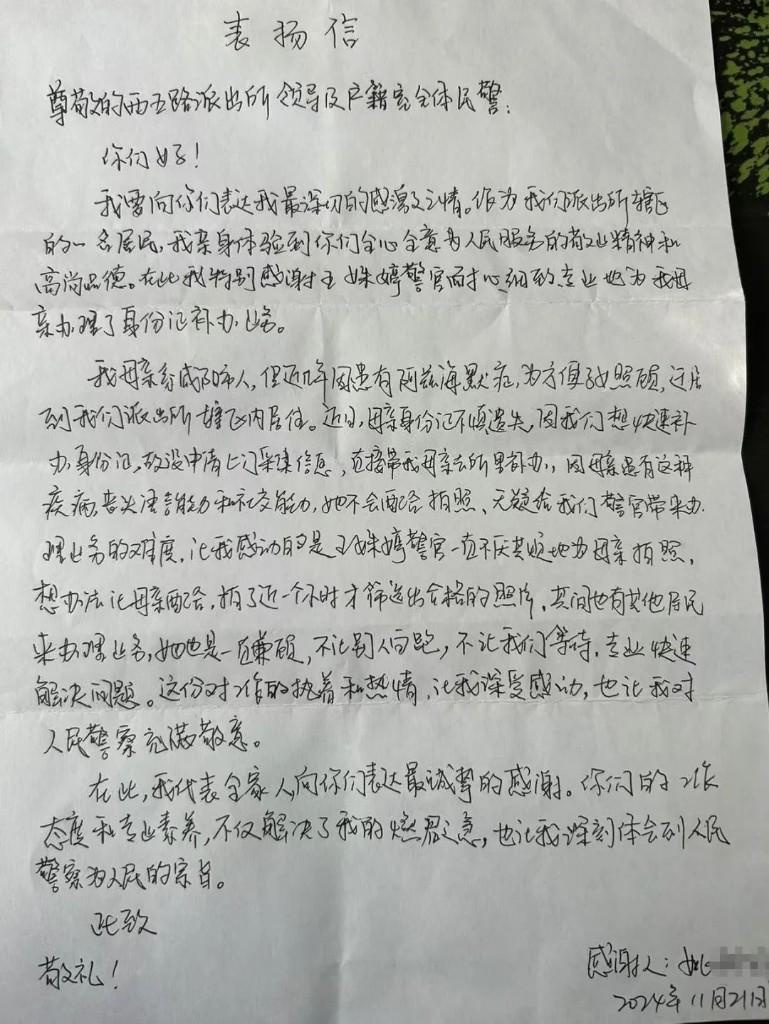 表扬信
尊敬的西五路派出所领导及户籍室全体民警:
你们好!
我要向你们表达我最深切的感激之情。作为我们派出所辖区
的一名居民,我亲身体验到你们全心全意为人民服务的敬业精神和
高尚品德。在此我特别感谢王姝婷警官耐心细致、专业地为我母
亲办理了身份证补办业务。
我母亲系咸阳人,但近几年因患有阿兹海默症,为方便子女照顾,迁居
到我们派出所辖区内居住。近日,母亲身份证不慎遗失,因我们想快速补
办身份证,故没申请上门采集信息,直接带我母亲去所里补办,因母亲患有这种
疾病丧失语言能力和社交能力,她不会配合拍照、无疑给我们警官带来办
理业务的难度,让我感动的是王姝婷警官一直不厌其烦地为母亲拍照,
想办法让母亲配合,拍了近一个小时才筛选出合格的照片,其间也有其他居民
来办理业务,她也是一直兼顾,不让别人白跑,不让我们等待,专业快速
解决问题。这份对工作的执着和热情,让我深受感动,也让我对
人民警察充满敬意。
在此,我代表全家人向你们表达最诚挚的感谢。你们的工作
态度和专业素养,不仅解决了我的燃眉之急,也让我深刻体会到人民
警察为人民的宗旨。
此致
敬礼!
感谢人:姚
2024年11月21日